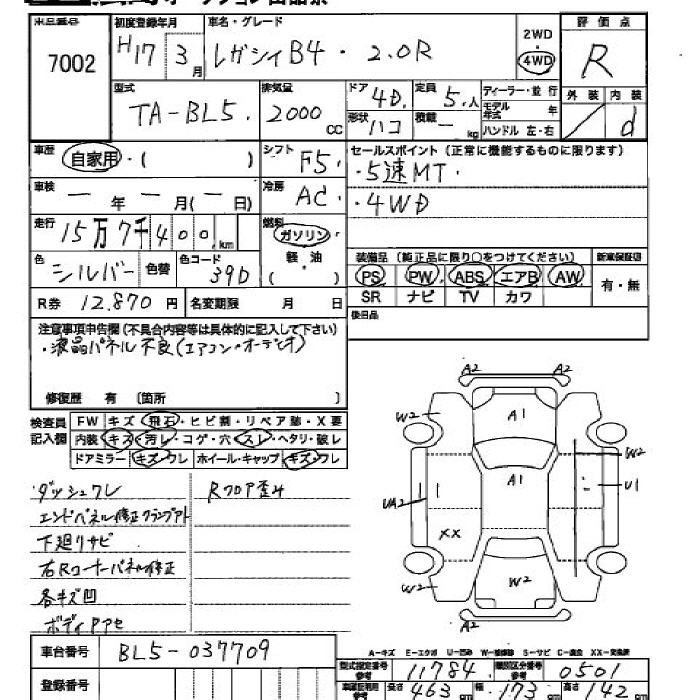 出品番号 7002
初度登録年月 H17 3月
車名・グレード レガシィB4・2.0R
2WD
・
4WD
評価点 R
外装 内装 d
型式 TA-BL5.
排気量 2000 CC
ドア 4D.
定員 5.人
形状 ハコ
積載 ー kg
ディーラー・並行
モデル年式 年
ハンドル 左・右
車歴 自家用・( )
シフト F5.
セールスポイント(正常に機能するものに限ります)
・5速MT.
・4WD
車検 ー年ー月(ー日)
冷房 AC
走行 15万7千400.km
燃料 ガソリン・軽・油 ( )
色 シルバー 色替
色コード 39D
装備品(純正品に限り○をつけてください)
新車保証書
PS PW ABS エアB AW
有・無
SR ナビ TV カワ
R券 12.870円
名変期限 月 日
後日品
注意事項申告欄(不具合内容等は具体的に記入して下さい)
・液晶パネル不良(エアコン・オーデオ)
修復歴 有 〔箇所 〕
検査員記入欄
FW キズ・飛石・ヒビ割・リペア跡・X要
内装 キズ・汚レ・コゲ・穴・スレ・ヘタリ・破レ
ドアミラー キズ・ワレ ホイール・キャップ キズ・ワレ
ダッシュワレ
Rフロア歪み
エンドパネル修正クランプアト
下廻りサビ
右Rコーナーパネル修正
各キズ凹
ボディ
A2 A2
W2 A1
A1 W2
UA2 U1
XX
W2 W2
A2
A-キズ E-エクボ U-凹み W-補修跡 S-サビ C-腐食 XX-交換済
車台番号 BL5-037709
型式指定番号 参考 11784
類別区分番号 参考 0501
登録番号
長さ 463 cm 幅 173 cm 高さ 142 cm